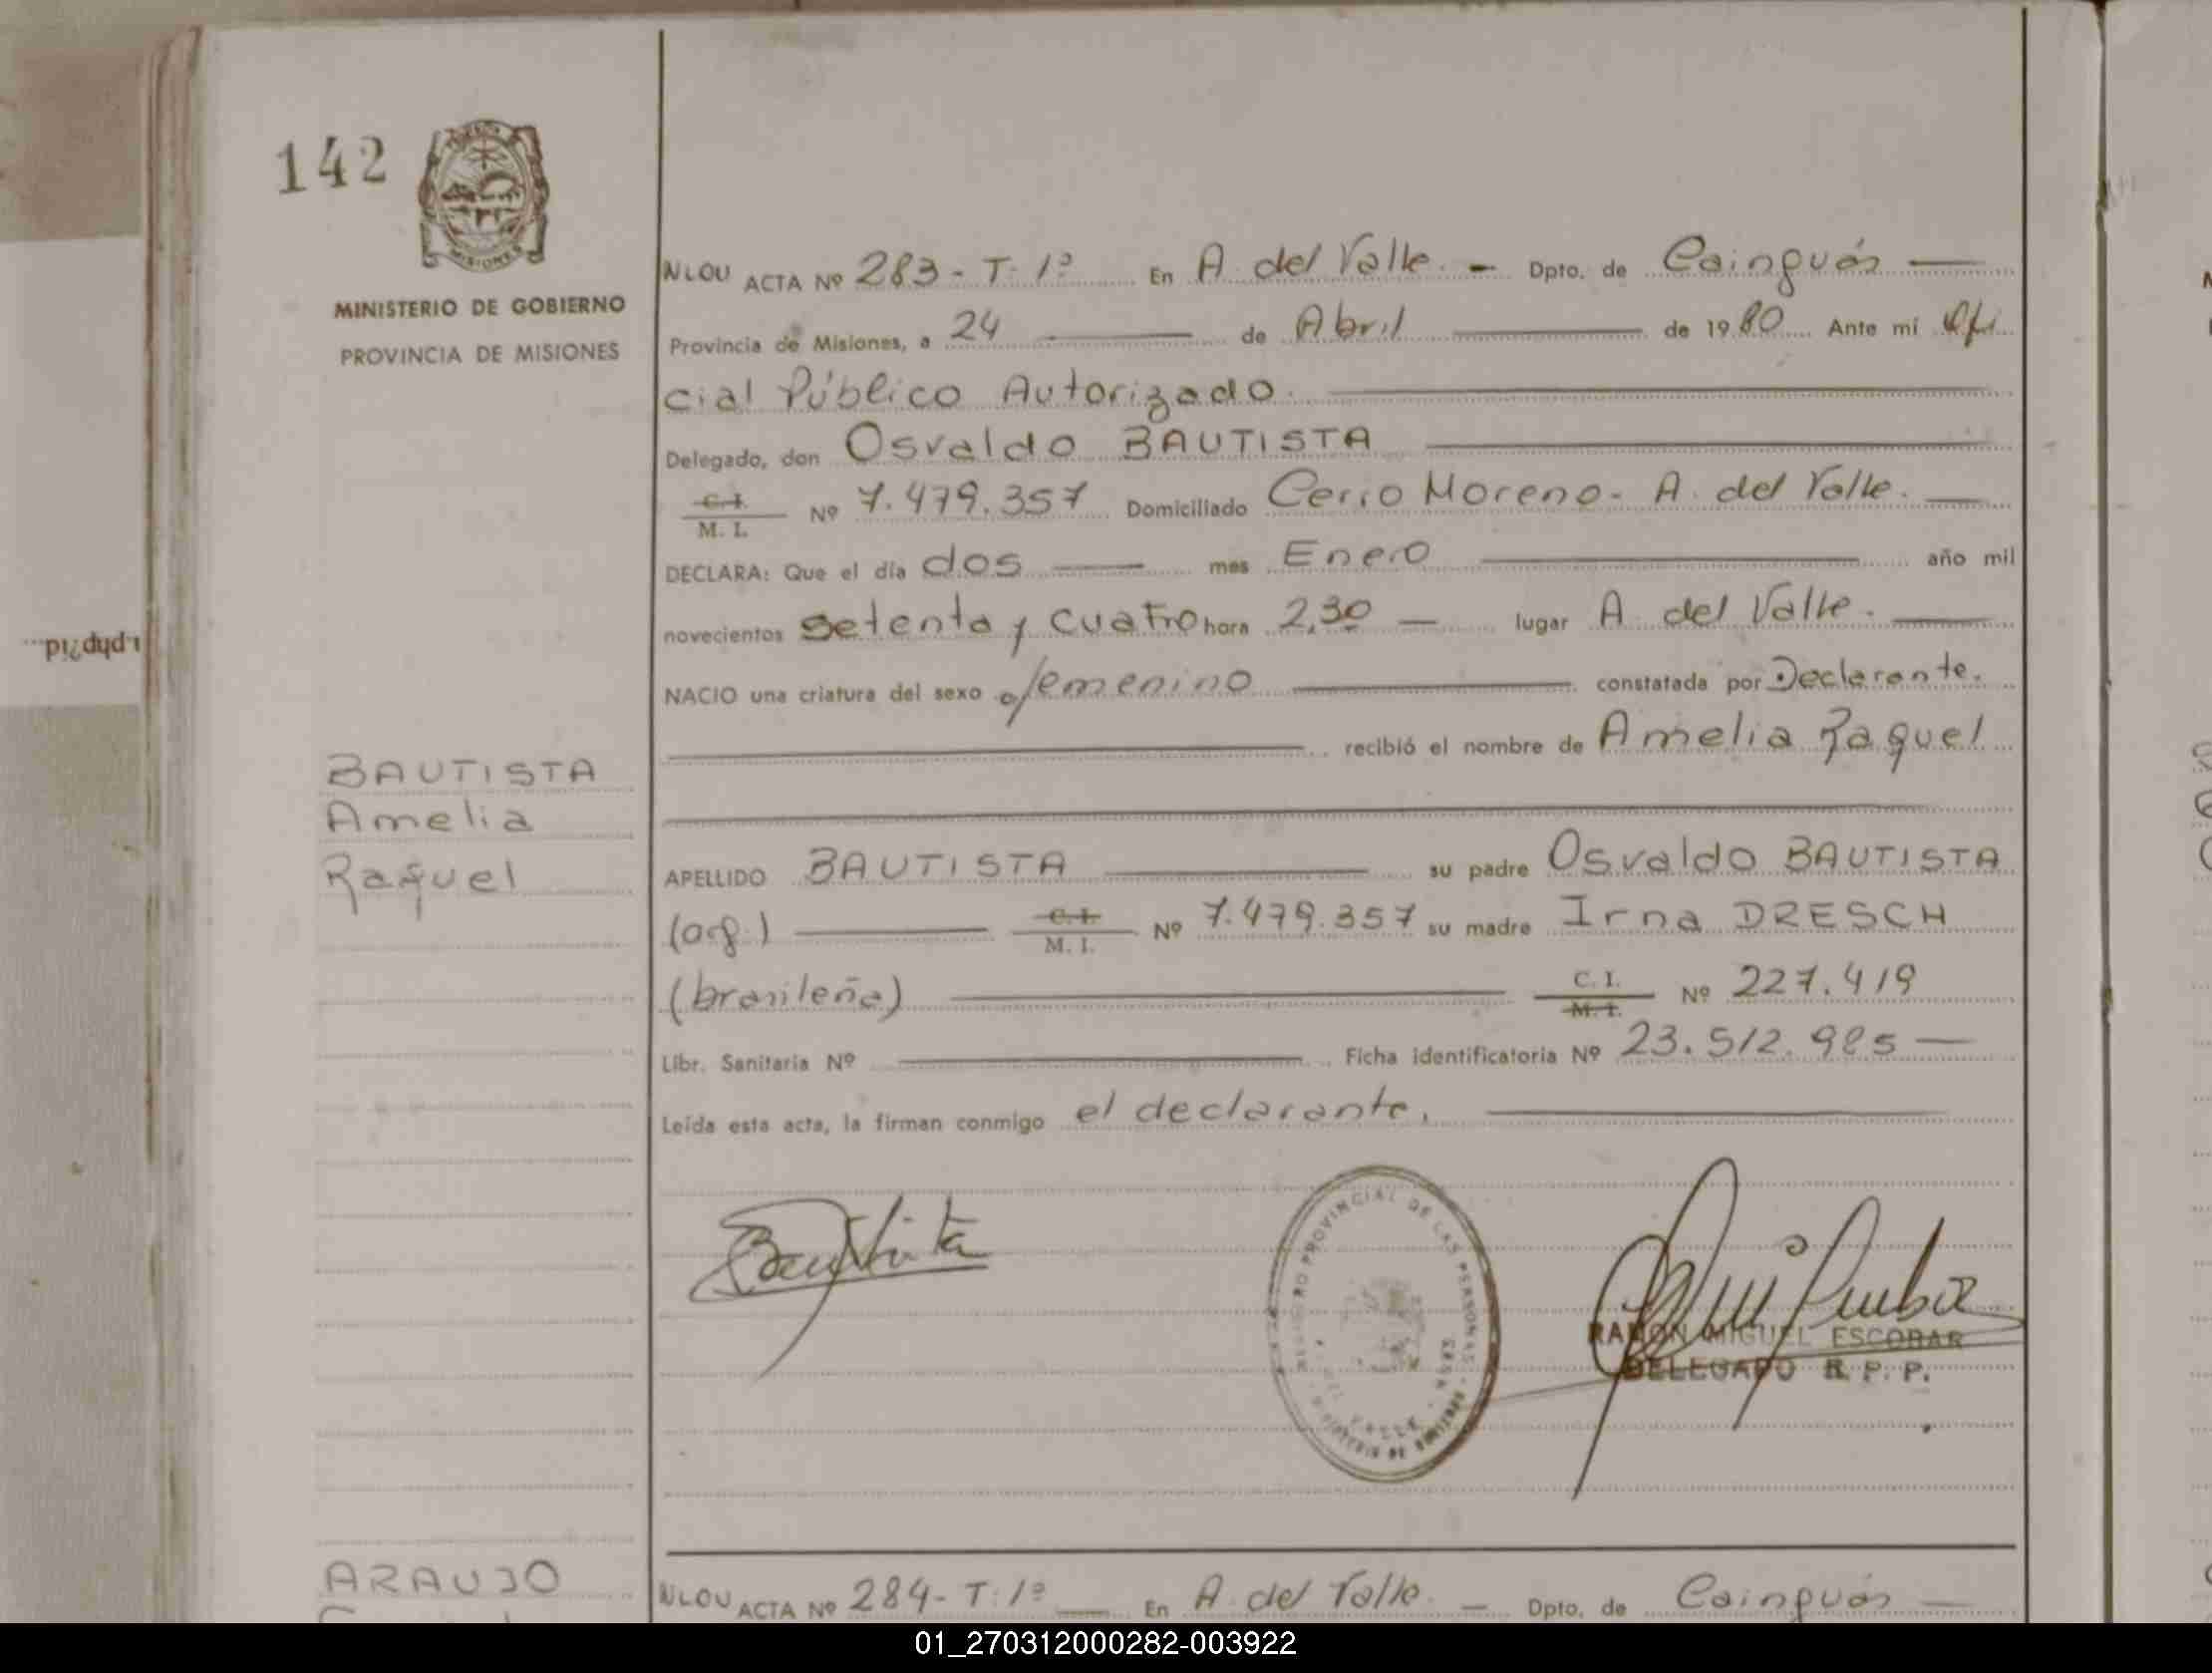 142
MISIONES
MINISTERIO DE GOBIERNO
PROVINCIA DE MISIONES
NLOU ACTA Nº 283 - T. 1º En A. del Valle. - Dpto. de Cainguás —
Provincia de Misiones, a 24 — de Abril — de 1980 Ante mí Ofi
cial Público Autorizado. —
Delegado, don Osvaldo BAUTISTA —
C.I. M. I. Nº 7.479.357 Domiciliado Cerro Moreno - A. del Valle. —
DECLARA: Que el día dos — mes Enero — año mil
novecientos setenta y cuatro hora 2,30 — lugar A. del Valle. —
NACIO una criatura del sexo femenino — constatada por Declarante.
— recibió el nombre de Amelia Raquel
BAUTISTA
Amelia
Raquel
APELLIDO BAUTISTA — su padre Osvaldo BAUTISTA
(arg.) — C.I. M. I. Nº 7.479.357 su madre Irna DRESCH
(brasileña) — C. I. M. I. Nº 227.419
Libr. Sanitaria Nº — Ficha identificatoria Nº 23.512.985 —
Leída esta acta, la firman conmigo el declarante. —
Bautista
REGISTRO PROVINCIAL DE LAS PERSONAS
VALLE
RAMON MIGUEL ESCOBAR
DELEGADO R. P. P.
ARAUJO
NLOU ACTA Nº 284 - T: 1º — En A. del Valle. — Dpto. de Cainguás —
.php?id...
01_270312000282-003922